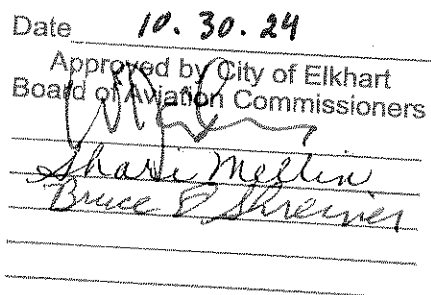 Date 10.30.24
Approved by City of Elkhart
Board of Aviation Commissioners
Shari Mellin
Bruce Shreiner